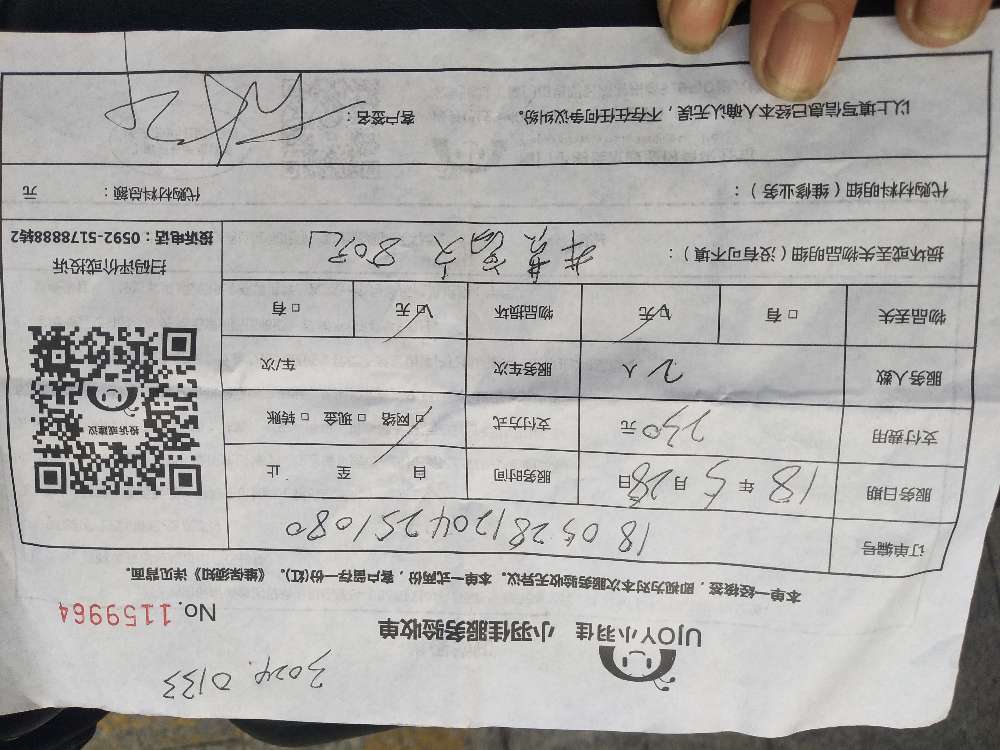 3024.0133
UJOY小羽佳 小羽佳服务验收单 No. 1159964
本单一经接签，即视为对本次服务验收无异议。本单一式两份，客户留存一份(红)。《维保须知》详见背面。
订单编号 1805281204251080
服务日期 18年5月28日 服务时间 自 至 止
支付费用 230元 支付方式 ☑网络 □现金 □转账
服务人数 2人 服务车次 车/次
物品丢失 □有 ☑无 物品损坏 ☑无 □有
投诉或建议
扫码评价或投诉
投诉电话：0592-5178888转2
损坏或丢失物品明细（没有可不填）： 80元
代购材料明细（维修业务）： 代购材料总额： 元
以上填写信息已经本人确认无误，不存在任何争议纠纷。 客户签名：